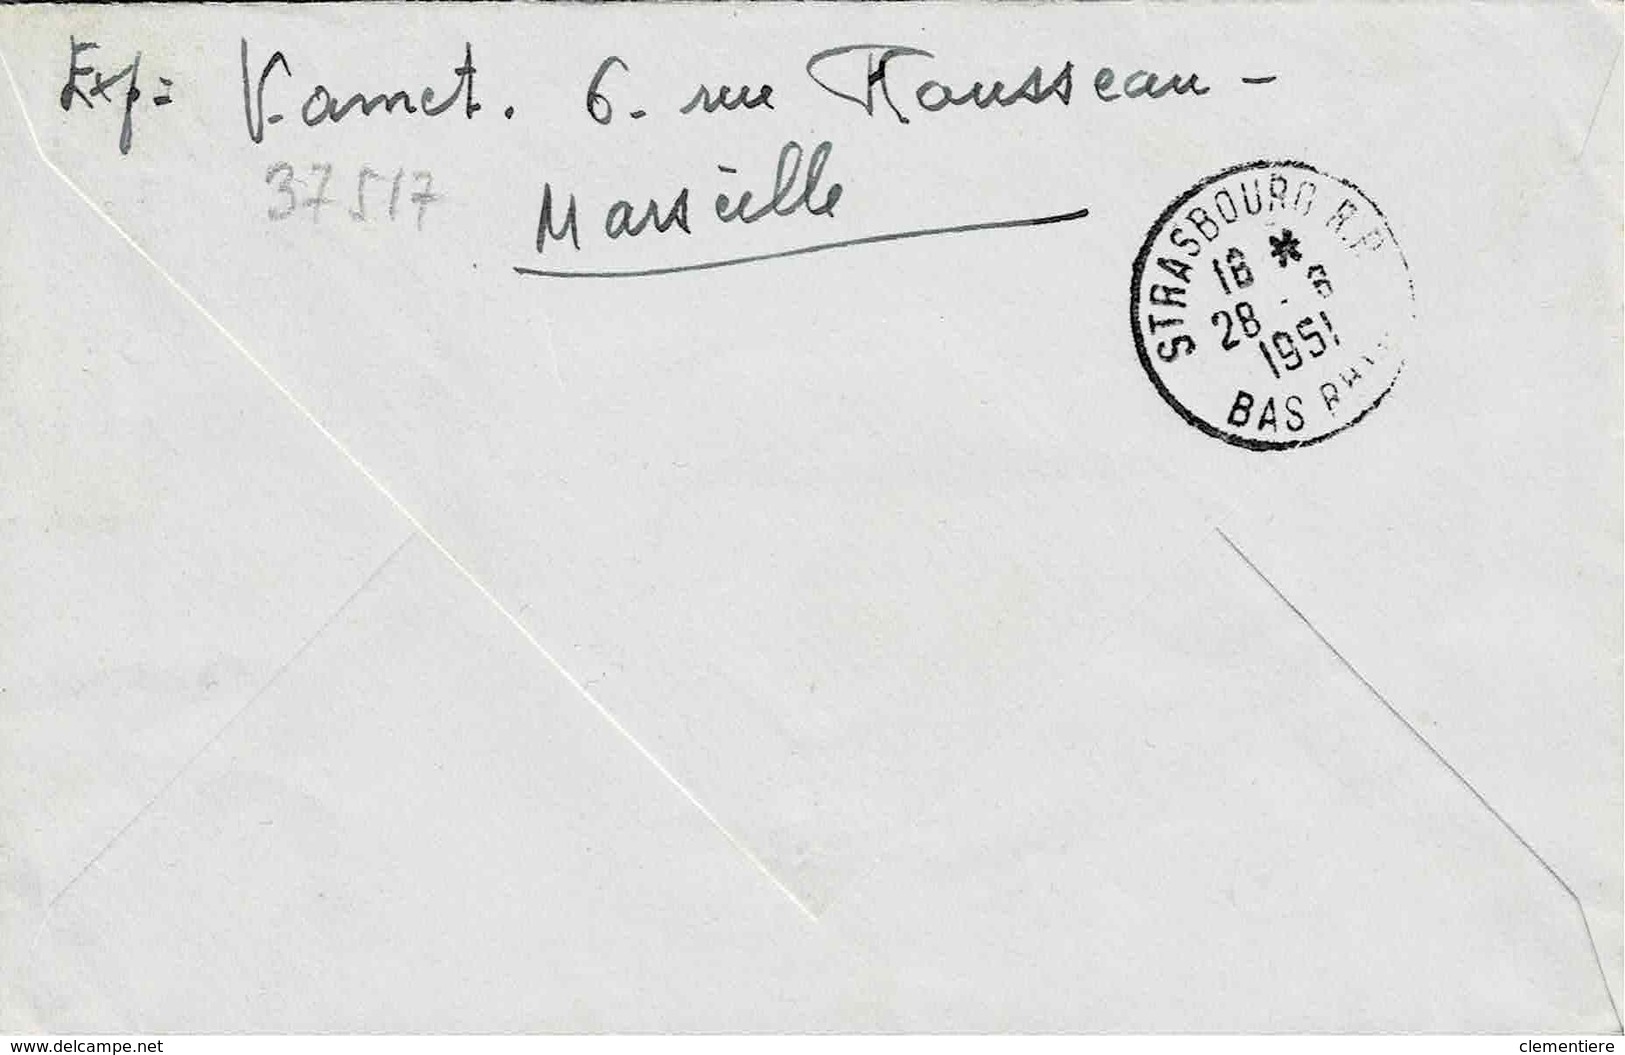 Exp= Vamet. 6. rue Rousseau -
37517
Marseille
STRASBOURG R.P.
18 *
28 - 6
1951
BAS RHIN
www.delcampe.net
clementiere